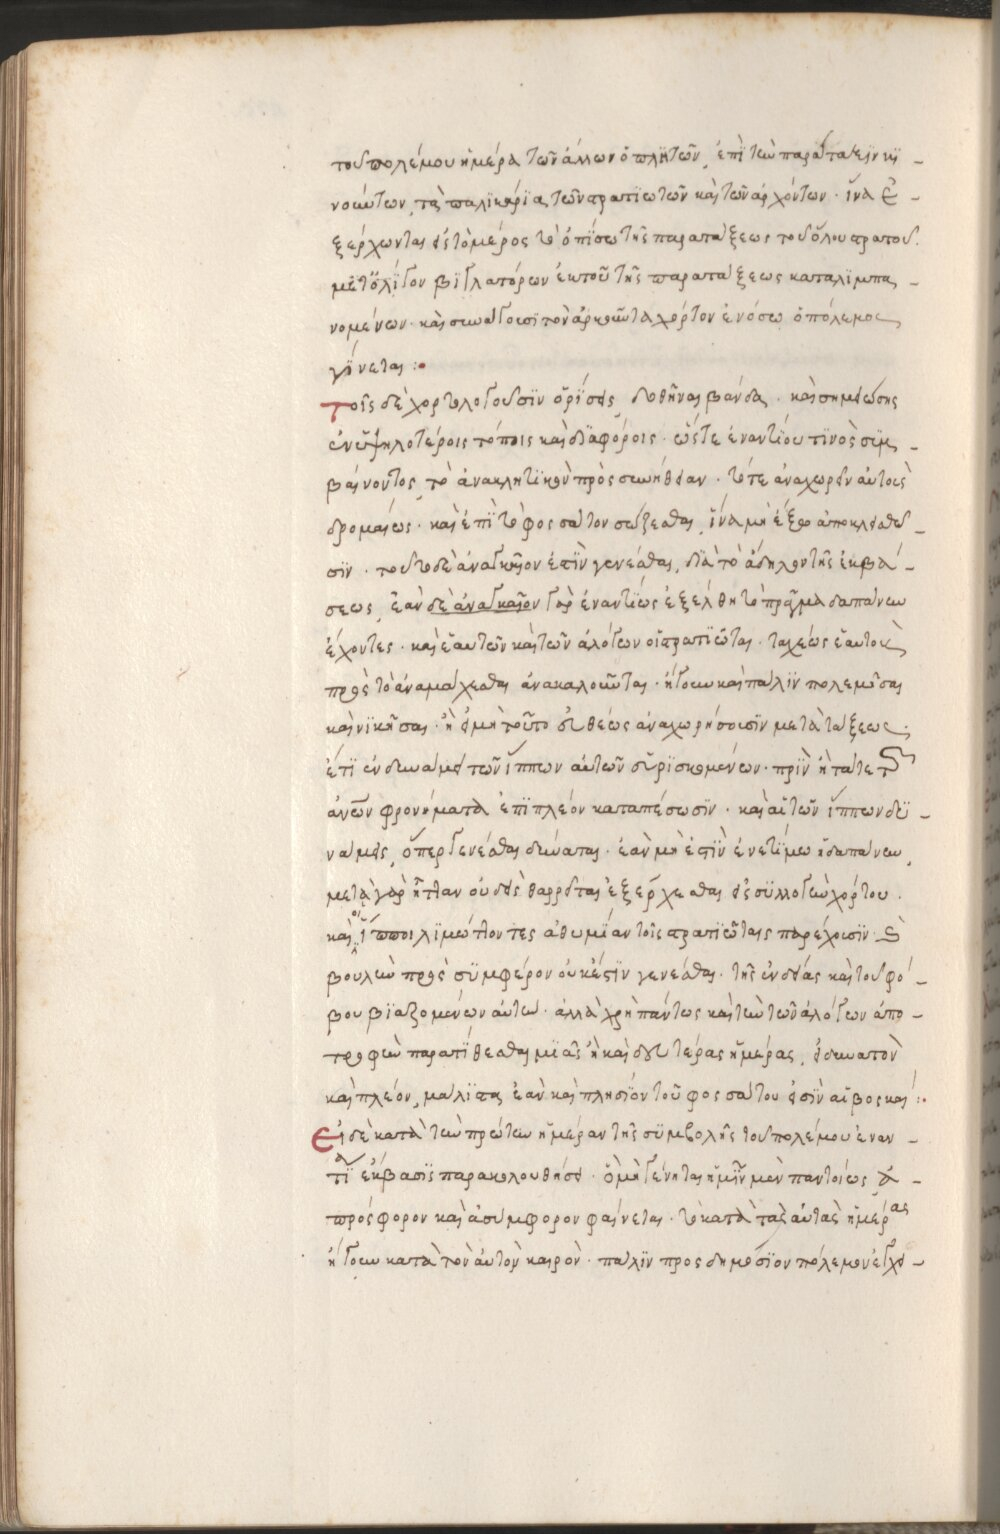 τοῦ πολέμου ἡμέρα τῶν ἄλλων ὁπλητῶν, ἐπὶ τὴν παράταξϊν κϊ-
νούντων, τὰ παλικάρϊα τῶν στρατϊωτῶν καὶ τῶν ἀρχόντων· ἵνα ἐ-
ξέρχωνται εἰς τὸ μέρος τὸ ὀπΐσω τῆς παρατάξεως τοῦ ὅλου στρατοῦ.
μετ' ὀλΐγον βϊγλατόρων ἐκ τοῦ τῆς παρατάξεως καταλϊμπα-
νομένων· καὶ συνάγουσϊ τὸν ἀρκοῦντα χόρτον ἐν ὅσω ὁ πόλεμος
γΐνεται :•
Τοῖς δὲ χορτολογοῦσϊν ὁρΐσεις δοθῆναι βάνδα· καὶ σημειώσης
ἐν ὑψηλοτέροις τόποις καὶ δϊαφόροις· ὥστε ἐναντΐου τϊνὸς συμ-
βαίνοντος, τὸ ἀνακλητϊκὸν πρὸς συνήθειαν· τότε ἀναχωρεῖν αὐτοὺς
δρομαίως· καὶ ἐπὶ τὸ φοσσάτον σώζεσθαι, ἵνα μὴ ἔξω ἀποκλεισθῶ-
σϊν· τοῦτο δὲ ἀναγκαῖον ἐστϊν γενέσθαι, δϊὰ τὸ ἄδηλον τῆς ἐκβά-
σεως, ἐὰν δὲ ἀναγκαῖον γὰρ ἐναντΐως ἐξέλθη τὸ πρᾶγμα δαπάνην
ἔχοντες· καὶ ἑαυτῶν καὶ τῶν ἀλόγων οἱ στρατϊῶται· ταχέως ἑαυτοὺς
πρὸς τὸ ἀναμάχεσθαι ἀνακαλοῦνται· ἤγουν καὶ πάλϊν πολεμῆσαι
καὶ νϊκῆσαι· ἢ εἰ μὴ τοῦτο εὐθέως ἀναχωρήσουσϊν μετὰ τάξεως·
ἔτϊ ἐν δυνάμει τῶν ἵππων αὐτῶν εὑρϊσκομένων· πρϊν ἢ τά τε τῶν
ἀνῶν φρονήματα ἐπϊπλέον καταπέσωσϊν· καὶ αἱ τῶν ἵππων δϋ-
νάμεις, ὅπερ γενέσθαι δύναται· ἐὰν μὴ ἐστϊν ἐν ἑτΐμω ἡ δαπάνην,
μετὰ γὰρ ἧτταν οὐδεὶς θαρρεῖται ἐξέρχεσθαι εἰς σϋλλογὴν χόρτου.
καὶ οἱ ἵπποι λϊμώττοντες ἀθυμΐαν τοῖς στρατϊώταις παρέχουσϊν·
βουλὴν πρὸς σϋμφέρον οὐκ ἔστϊν γενέσθαι· τῆς ἐνδείας καὶ τοῦ φό-
βου βϊαζομένων αὐτὴν· ἀλλὰ χρὴ πάντως καὶ τὴν τῶν ἀλόγων ἀπο-
τροφὴν παρατΐθεσθαι μϊᾶς ἢ καὶ δευτέρας ἡμέρας, εἰ δυνατὸν
καὶ πλέον, μάλϊστα ἐὰν καὶ πλησΐον τοῦ φοσσάτου εἰσϊν αἱ βοσκαί :•
Εἰ δὲ κατὰ τὴν πρώτην ἡμέραν τῆς σϋμβολῆς τοῦ πολέμου ἐναν-
τΐα ἔκβασϊς παρακολουθήσει· ὃ μὴ γένηται ἡμῖν μὲν παντοίως ἀ-
πρόσφορον καὶ ἀσύμφορον φαίνεται· τὸ κατὰ τὰς αὐτὰς ἡμέρας
ἤγουν κατὰ τὸν αὐτὸν καιρὸν· πάλϊν πρὸς δημόσϊον πόλεμον ἐγχει-